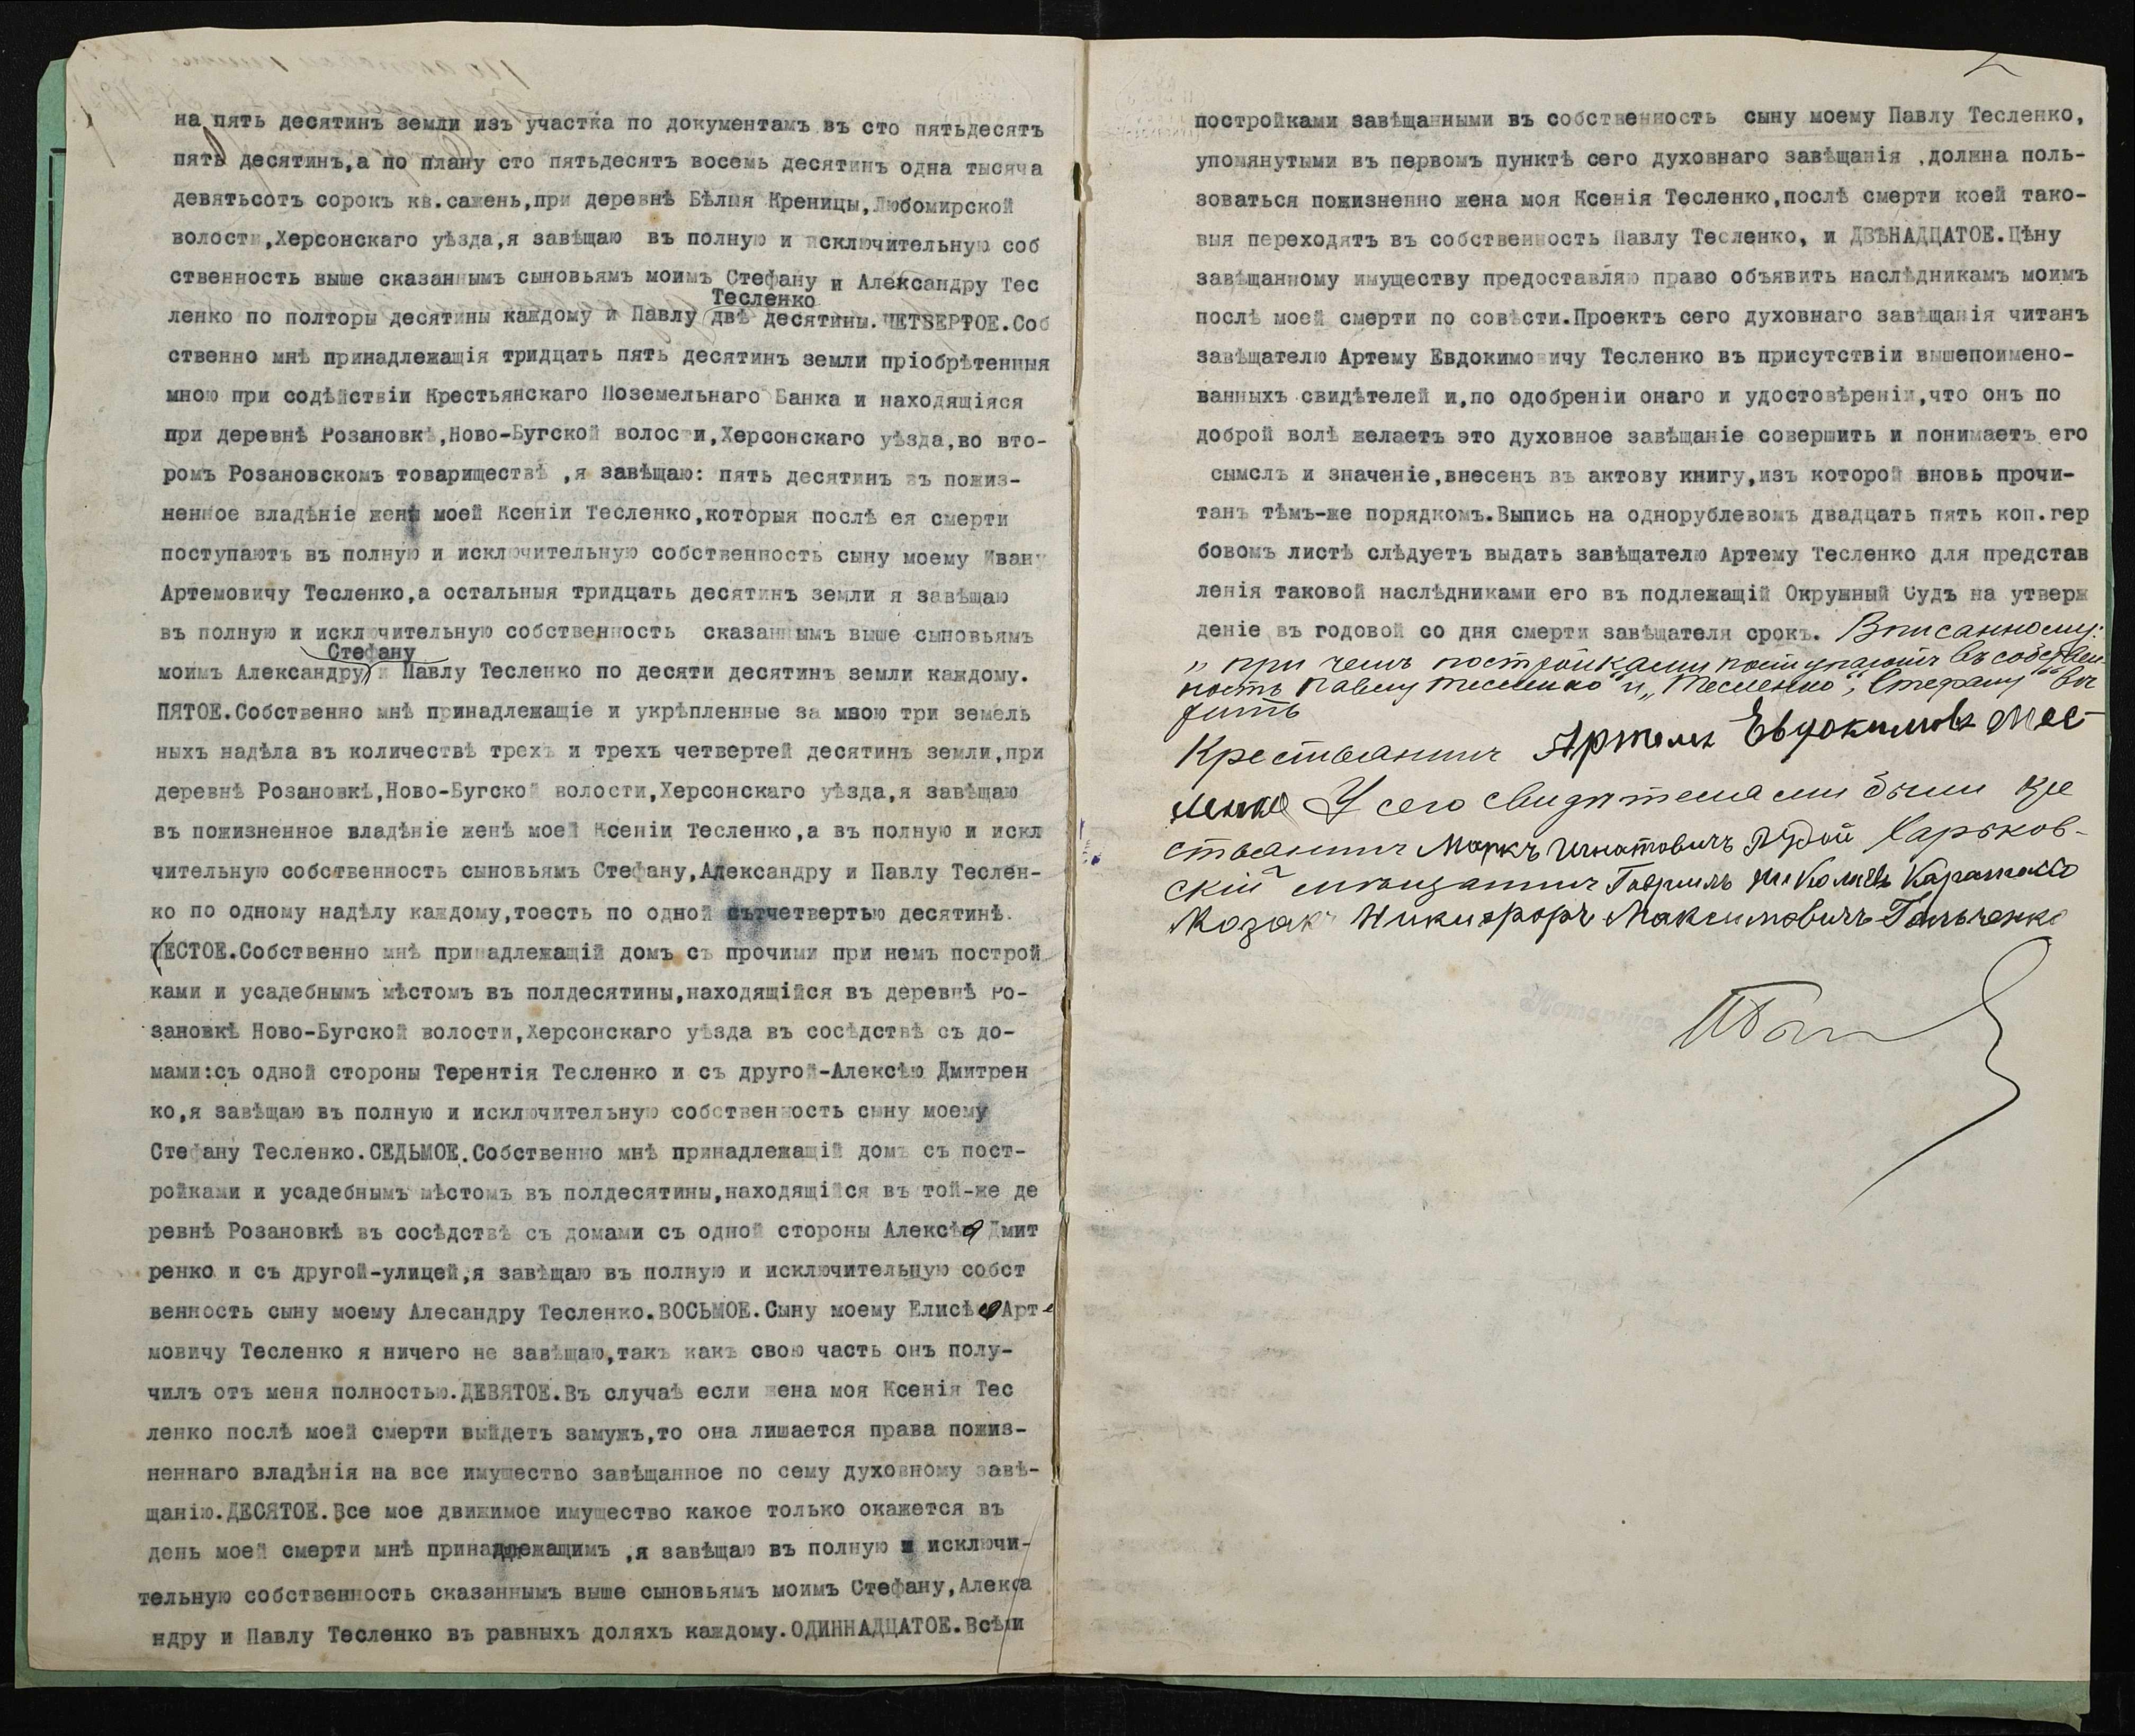 на пять десятинъ земли изъ участка по документамъ въ сто пятьдесятъ
пять десятинъ,а по плану сто пятьдесятъ восемь десятинъ одна тысяча
девятьсотъ сорокъ кв.сажень,при деревнѣ Бѣлыя Креницы,Любомирской
волости,Херсонскаго уѣзда,я завѣщаю въ полную и исключительную соб
ственность выше сказаннымъ сыновьямъ моимъ Стефану и Александру Тес
Тесленко
ленко по полторы десятины каждому и Павлу двѣ десятины.ЧЕТВЕРТОЕ.Соб
ственно мнѣ принадлежащія тридцать пять десятинъ земли пріобрѣтенныя
мною при содѣйствіи Крестьянскаго Поземельнаго Банка и находящіяся
при деревнѣ Розановкѣ,Ново-Бугской волости,Херсонскаго уѣзда,во вто-
ромъ Розановскомъ товариществѣ ,я завѣщаю: пять десятинъ въ пожиз-
ненное владѣніе женѣ моей Ксеніи Тесленко,которыя послѣ ея смерти
поступаютъ въ полную и исключительную собственность сыну моему Ивану
Артемовичу Тесленко,а остальныя тридцать десятинъ земли я завѣщаю
въ полную и исключительную собственность сказаннымъ выше сыновьямъ
Стефану
моимъ Александру и Павлу Тесленко по десяти десятинъ земли каждому.
ПЯТОЕ.Собственно мнѣ принадлежащіе и укрѣпленные за мною три земель
ныхъ надѣла въ количествѣ трехъ и трехъ четвертей десятинъ земли,при
деревнѣ Розановкѣ,Ново-Бугской волости,Херсонскаго уѣзда,я завѣщаю
въ пожизненное владѣніе женѣ моей Ксеніи Тесленко,а въ полную и искл
чительную собственность сыновьямъ Стефану,Александру и Павлу Теслен-
ко по одному надѣлу каждому,тоесть по одной четвертью десятинѣ.
ШЕСТОЕ.Собственно мнѣ принадлежащій домъ съ прочими при немъ построй
ками и усадебнымъ мѣстомъ въ полдесятины,находящійся въ деревнѣ Ро-
зановкѣ Ново-Бугской волости,Херсонскаго уѣзда въ сосѣдствѣ съ до-
мами:съ одной стороны Терентія Тесленко и съ другой-Алексѣю Дмитрен
ко,я завѣщаю въ полную и исключительную собственность сыну моему
Стефану Тесленко.СЕДЬМОЕ.Собственно мнѣ принадлежащій домъ съ пост-
ройками и усадебнымъ мѣстомъ въ полдесятины,находящійся въ той-же де
ревнѣ Розановкѣ въ сосѣдствѣ съ домами съ одной стороны Алексѣя Дмит
ренко и съ другой-улицей,я завѣщаю въ полную и исключительную собст
венность сыну моему Алесандру Тесленко.ВОСЬМОЕ.Сыну моему Елисѣю Арте
мовичу Тесленко я ничего не завѣщаю,такъ какъ свою часть онъ полу-
чилъ отъ меня полностью.ДЕВЯТОЕ.Въ случаѣ если жена моя Ксенія Тес
ленко послѣ моей смерти выйдетъ замужъ,то она лишается права пожиз-
неннаго владѣнія на все имущество завѣщанное по сему духовному завѣ-
щанію.ДЕСЯТОЕ.Все мое движимое имущество какое только окажется въ
день моей смерти мнѣ принадлежащимъ ,я завѣщаю въ полную и исключи-
тельную собственность сказаннымъ выше сыновьямъ моимъ Стефану,Алекса
ндру и Павлу Тесленко въ равныхъ доляхъ каждому.ОДИННАДЦАТОЕ.Всѣми
2
постройками завѣщанными въ собственность сыну моему Павлу Тесленко,
упомянутыми въ первомъ пунктѣ сего духовнаго завѣщанія ,должна поль-
зоваться пожизненно жена моя Ксенія Тесленко,послѣ смерти коей тако-
выя переходятъ въ собственность Павлу Тесленко, и ДВѢНАДЦАТОЕ.Цѣну
завѣщанному имуществу предоставляю право объявить наслѣдникамъ моимъ
послѣ моей смерти по совѣсти.Проектъ сего духовнаго завѣщанія читанъ
завѣщателю Артему Евдокимовичу Тесленко въ присутствіи вышепоимено-
ванныхъ свидѣтелей и,по одобреніи онаго и удостовѣреніи,что онъ по
доброй волѣ желаетъ это духовное завѣщаніе совершить и понимаетъ его
сымслъ и значеніе,внесенъ въ актову книгу,изъ которой вновь прочи-
танъ тѣмъ-же порядкомъ.Выпись на однорублевомъ двадцать пять коп.гер
бовомъ листѣ слѣдуетъ выдать завѣщателю Артему Тесленко для представ
ленія таковой наслѣдниками его въ подлежащій Окружный Судъ на утверж
деніе въ годовой со дня смерти завѣщателя срокъ. Вписанному:
„ при чемъ постройками поступаютъ въ собствен
ность Павлу Тесленко“ и „Тесленко“, „Стефану“ вѣ
рить
Крестьянинъ Артемъ Евдокимовъ Тес-
ленко У сего свидѣтелями были кре
стьянинъ Маркъ Игнатовичъ Рудой Харьков-
скій мѣщанинъ Гавріилъ Николаевъ
Козакъ Никифоръ Максимовичъ Гальченко